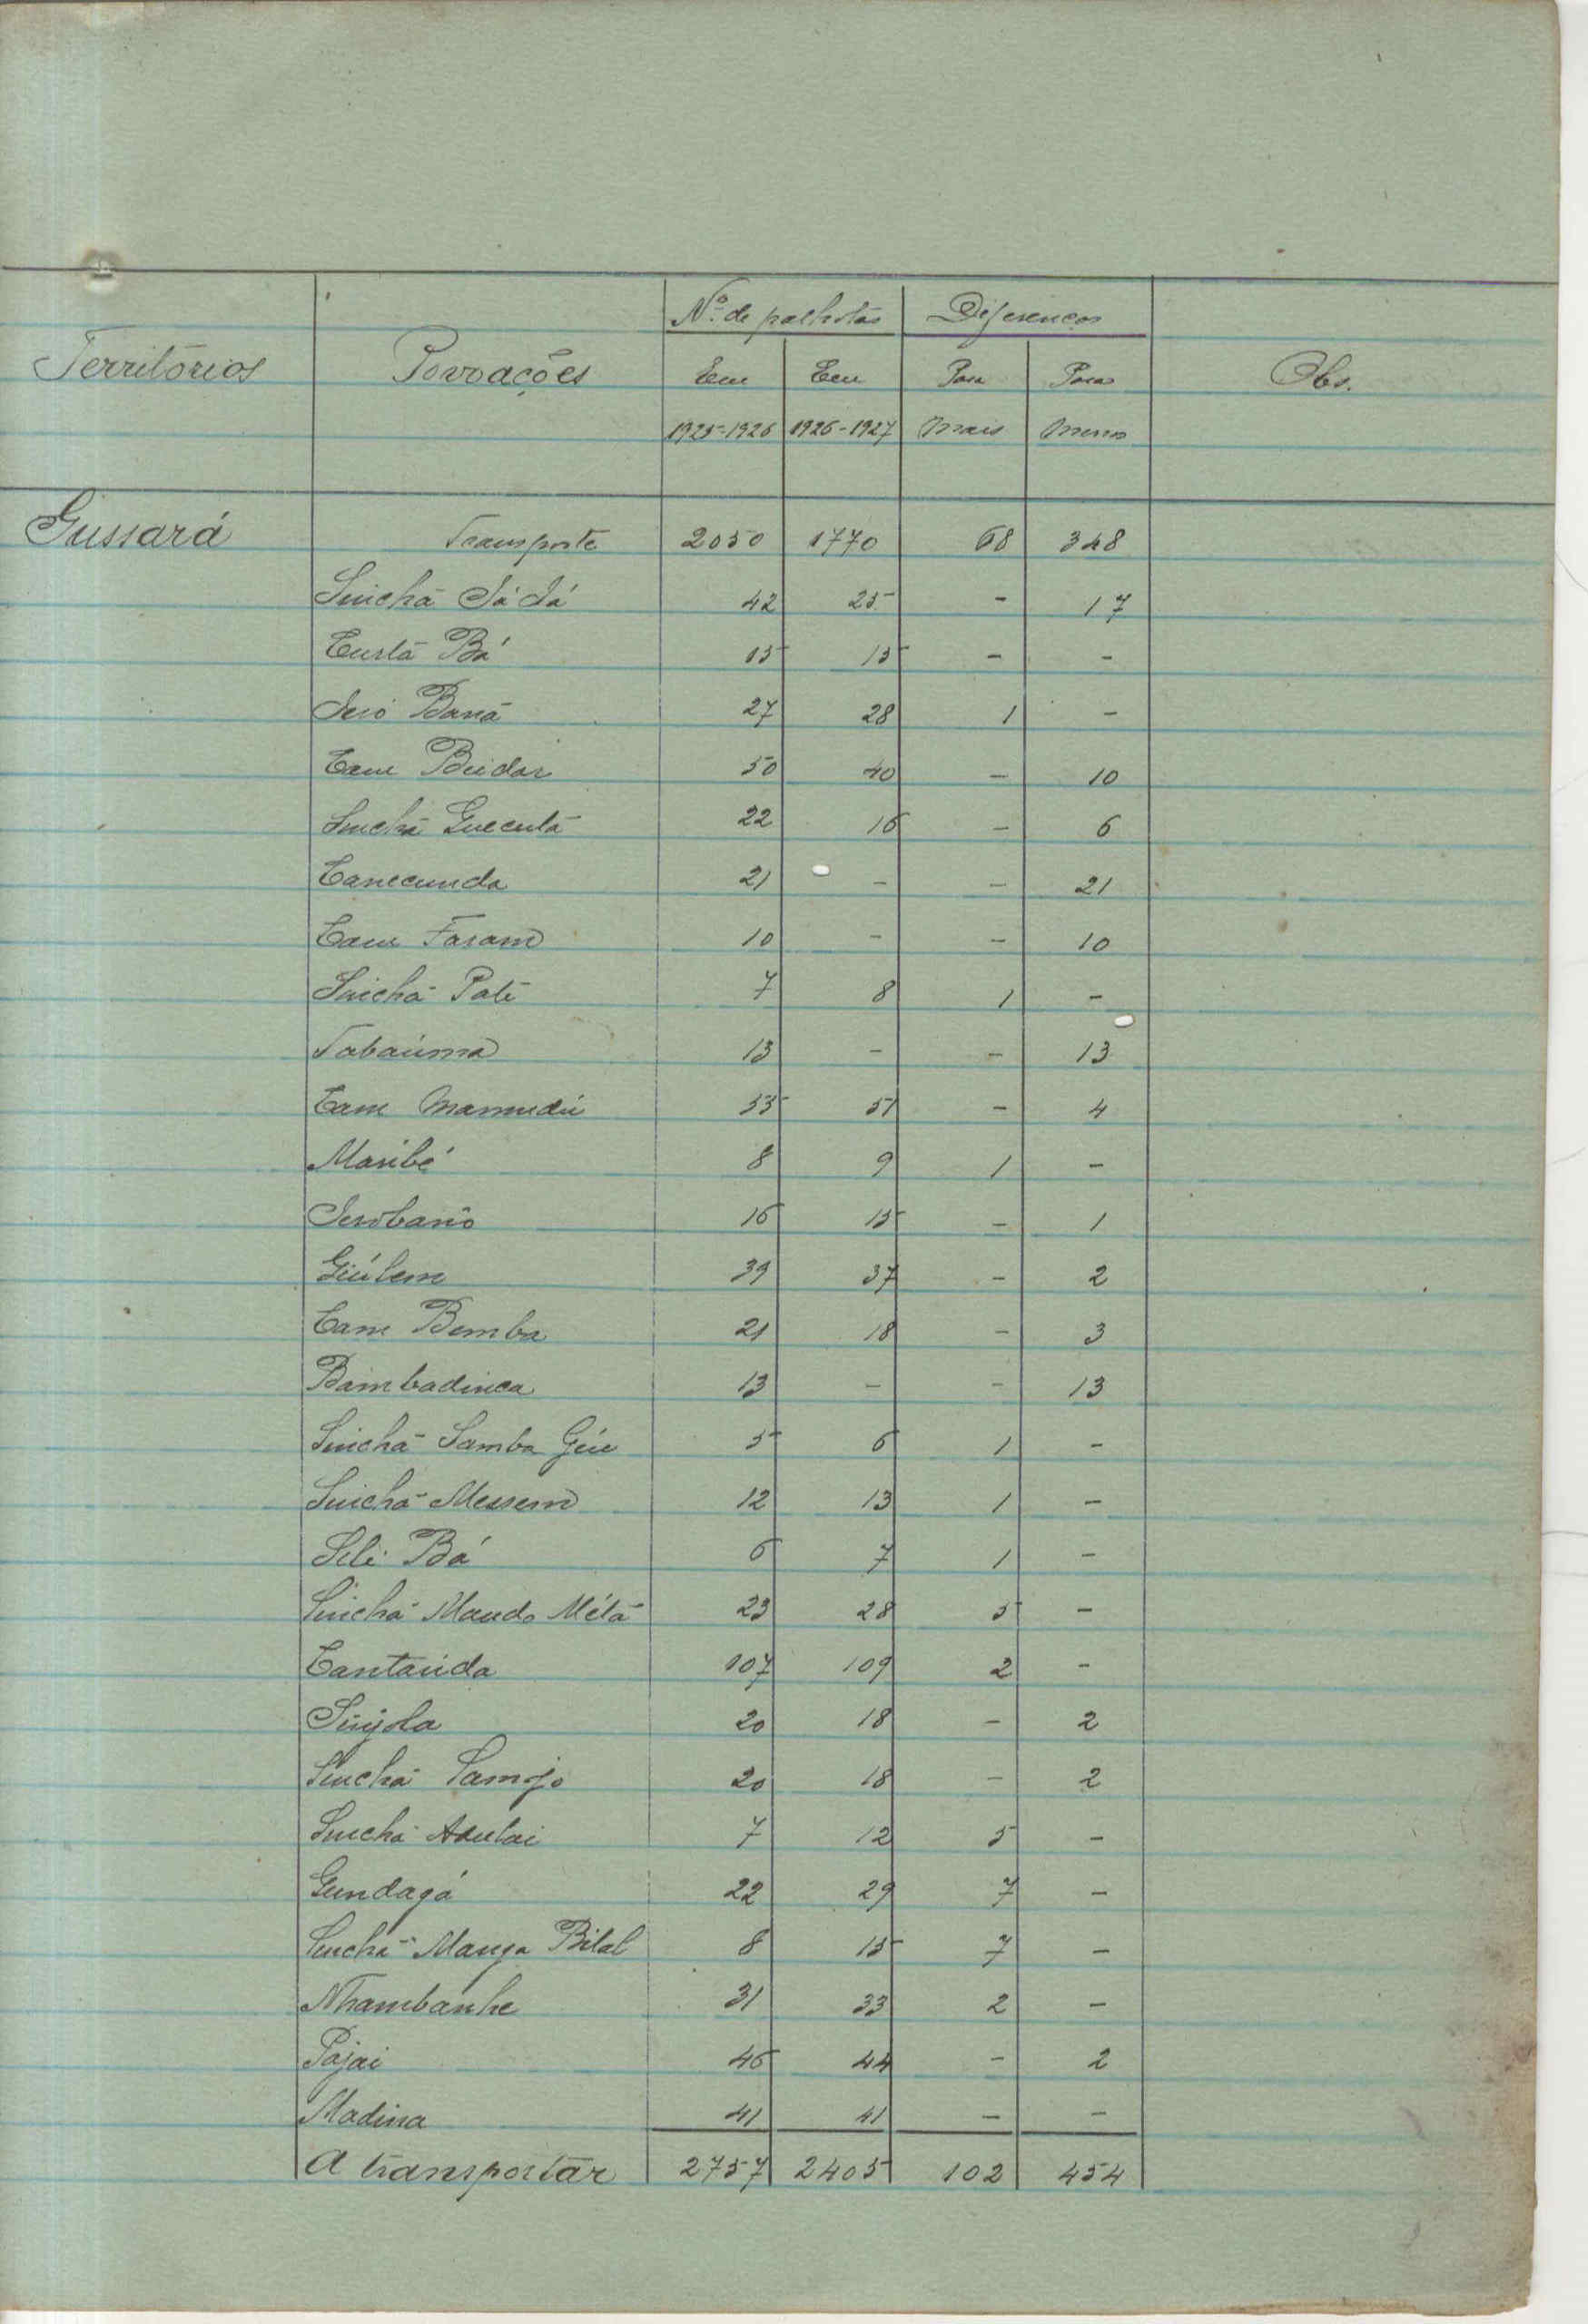 Nº de palhotas Diferenças
Territórios Povoações Em Em Para Para Obs.
1925-1926 1926-1927 Mais Menos
Gussará Transporte 2050 1770 68 348
Sinchã Sá Sá 42 25 - 17
15 15 - -
Seró Banã 27 28 1 -
Cam 50 40 - 10
Sinchã 22 16 - 6
Canecunda 21 - - 21
Cam Faram 10 - - 10
Sinchã Paté 7 8 1 -
13 - - 13
Cam Mamudú 55 51 - 4
Maribé 8 9 1 -
16 15 - 1
39 37 - 2
Cam Bemba 21 18 - 3
Bambadinca 13 - - 13
Sinchã Samba Giu 5 6 1 -
Sinchã Messem 12 13 1 -
Seli Bá 6 7 1 -
Sinchã Maudo Métã 23 28 5 -
Cantaúda 107 109 2 -
20 18 - 2
Sinchã Samojo 20 18 - 2
Sinchã 7 12 5 -
Gundagá 22 29 7 -
Sinchã Manga Bilal 8 15 7 -
Nhambanhe 31 33 2 -
Pajai 46 44 - 2
Madina 41 41 - -
A transportar 2757 2405 102 454